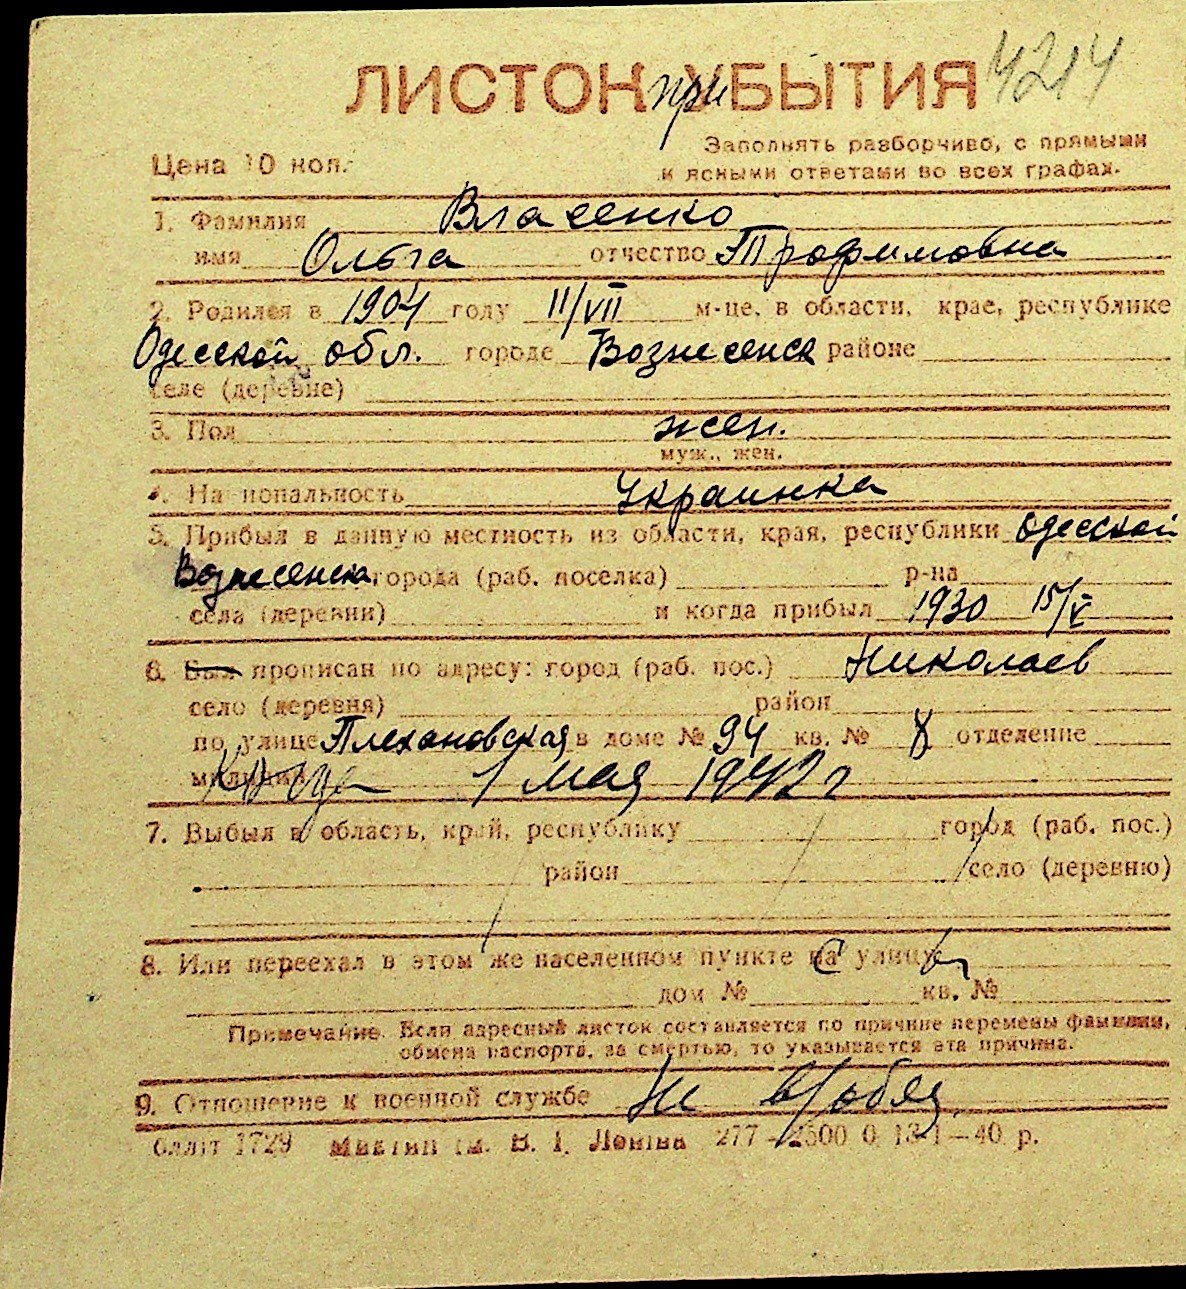 ЛИСТОК при УБЫТИЯ 4214
Цена 10 коп. Заполнять разборчиво, с прямыми
и ясными ответами во всех графах.
1. Фамилия Власенко
имя Ольга отчество Трофимовна
2. Родился в 1904 году 11/VII м-це, в области, крае, республике
Одесской обл. городе Вознесенск районе
селе (деревне)
3. Пол жен.
муж., жен.
4. Национальность Украинка
5. Прибыл в данную местность из области, края, республики Одесской
Вознесенска города (раб. поселка) р-на
села (деревни) и когда прибыл 1930 15/V
6. Был прописан по адресу: город (раб. пос.) Николаев
село (деревня) район
по улице Плехановская в доме № 94 кв. № 8 отделение
милиции Когда 1 мая 1942 г
7. Выбыл в область, край, республику город (раб. пос.)
район село (деревню)
8. Или переехал в этом же населенном пункте на улицу
дом № кв. №
Примечание. Если адресный листок составляется по причине перемены фамилии,
обмена паспорта, за смертью, то указывается эта причина.
9. Отношение к военной службе Не в/обяз.
1729 В. І. Леніна 277—2500 0 13-1—40 р.